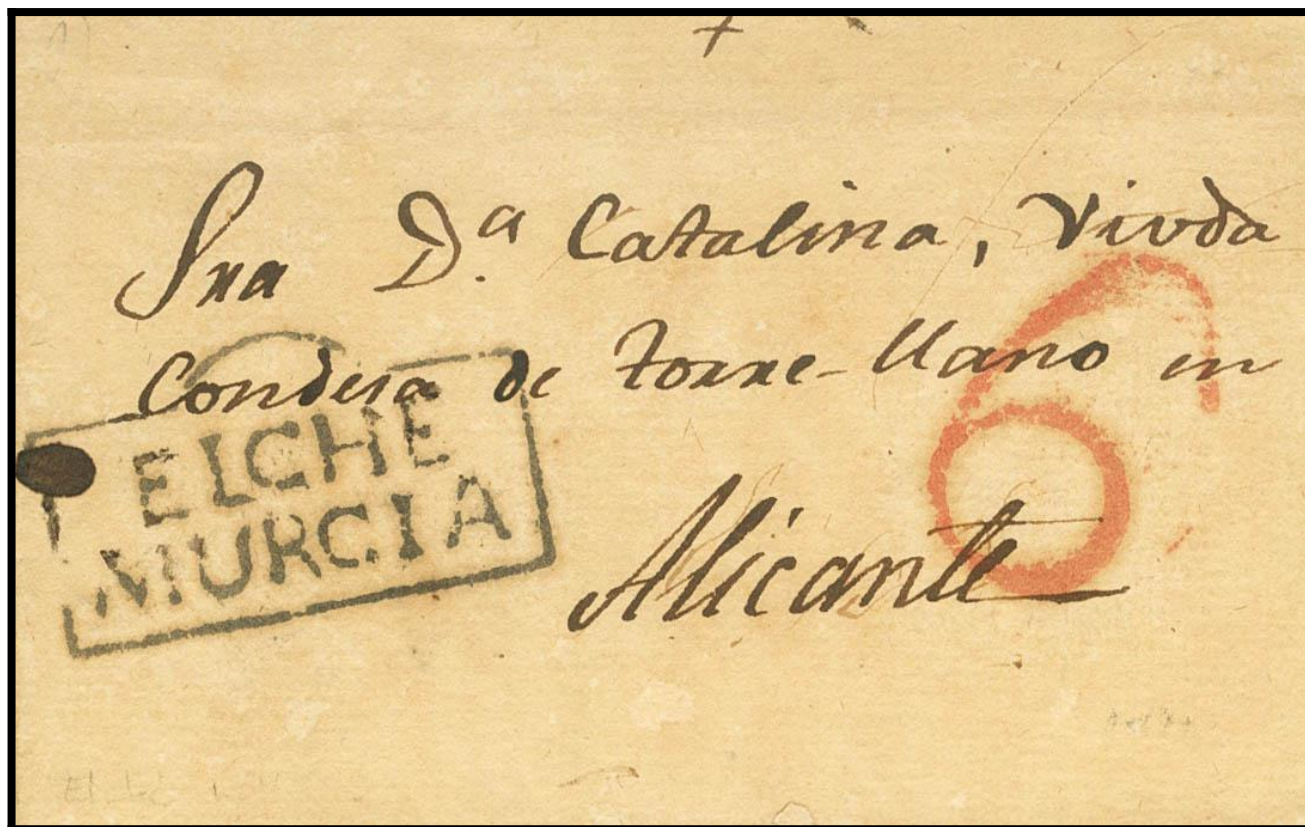 Sra D.ª Catalina, Viuda
Condesa de torre-llano en
Alicante
ELCHE
MURCIA
6